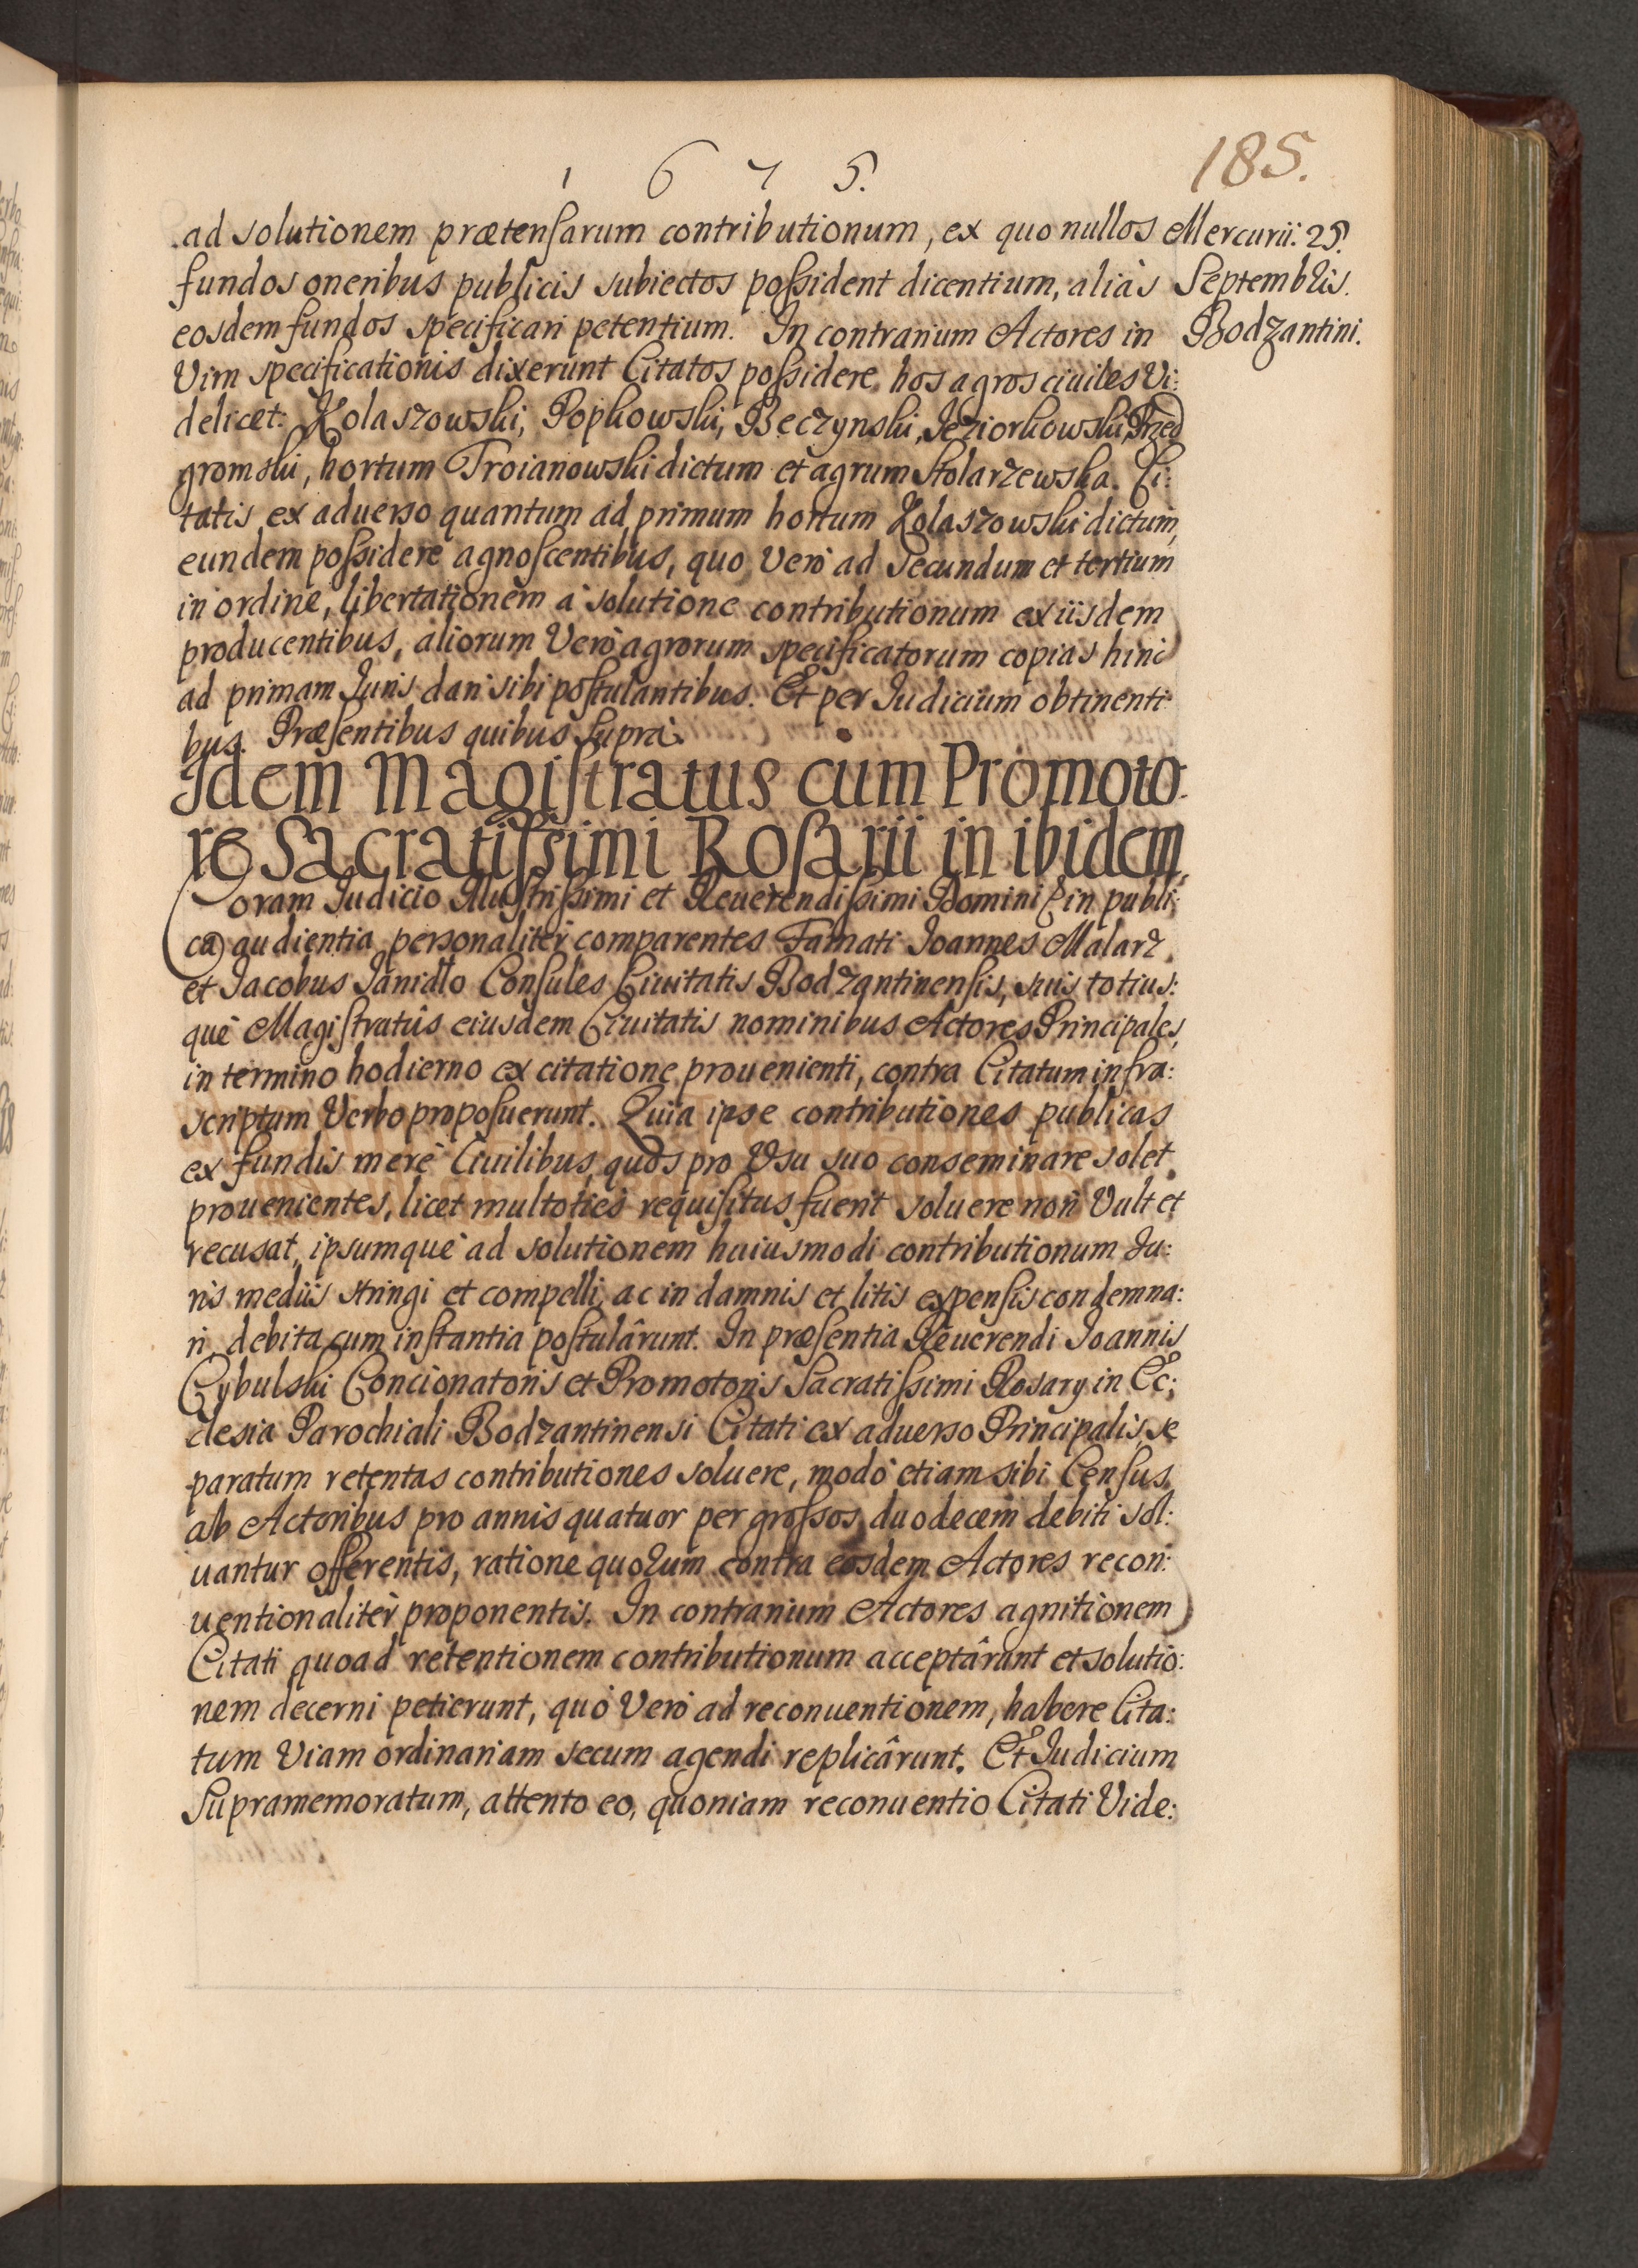 1 6 7 5.
185.
ad solutionem prætensarum contributionum, ex quo nullos
Mercurii. 25.
Septembris.
Bodzantini.
fundos oneribus publicis subiectos possident dicentium, aliàs
eosdem fundos specificari petentium. In contrarium Actores in
Vim specificationis dixerunt Citatos possidere, hos agros ciuiles Vi:
delicet: Kolaszowski, Popkowski, Beczynski, Jeziorkowski,
gromski, hortum Troianowski dictum et agrum Stolarzewska. Ci:
tatis ex aduerso quantum ad primum hortum Kolaszowski dictum,
eundem possidere agnoscentibus, quo Verò ad Secundum et tertium
in ordine, libertationem à solutione contributionum ex iisdem
producentibus, aliorum Verò agrorum specificatorum copias hinc
ad primam Juris dari sibi postulantibus. Et per Judicium obtinenti:
bus. Præsentibus quibus suprà.
Idem Magistratus cum Promoto:
re Sacratissimi Rosarii in ibidem,
Coram Judicio Illustrissimi et Reuerendissimi Domini in publi:
ca audientia personalitèr comparentes Famati Joannes Malarz
et Jacobus Janidlo Consules Ciuitatis Bodzantinensis, suis totius:
què Magistratûs eiusdem Ciuitatis nominibus Actores Principales,
in termino hodierno ex citatione prouenienti, contra Citatum infra:
scriptum Verbo proposuerunt. Quia ipse contributiones publicas
ex fundis merè Ciuilibus, quos pro Vsu suo conseminare solet
prouenientes, licet multoties requisitus fuerit soluere non Vult et
recusat, ipsumquè ad solutionem huiusmodi contributionum Ju:
ris mediis stringi et compelli, ac in damnis et litis expensis condemna:
ri, debita cum instantia postulârunt. In præsentia Reuerendi Joannis
Cybulski Concionatoris et Promotoris Sacratissimi Rosary in Ec:
clesia Parochiali Bodzantinensi Citati ex aduerso Principalis, se
paratum retentas contributiones soluere, modò etiam sibi Census
ab Actoribus pro annis quatuor per grossos duodecem debiti sol:
uantur offerentis, ratione quorum contra eosdem Actores recon:
uentionalitèr proponentis. In contrarium Actores agnitionem
Citati quoad retentionem contributionum acceptârunt et solutio:
nem decerni petierunt, quò Verò ad reconuentionem, habere Cita:
tum Viam ordinariam secum agendi replicârunt. Et Judicium
Supramemoratum, attento eo, quoniam reconuentio Citati Vide: